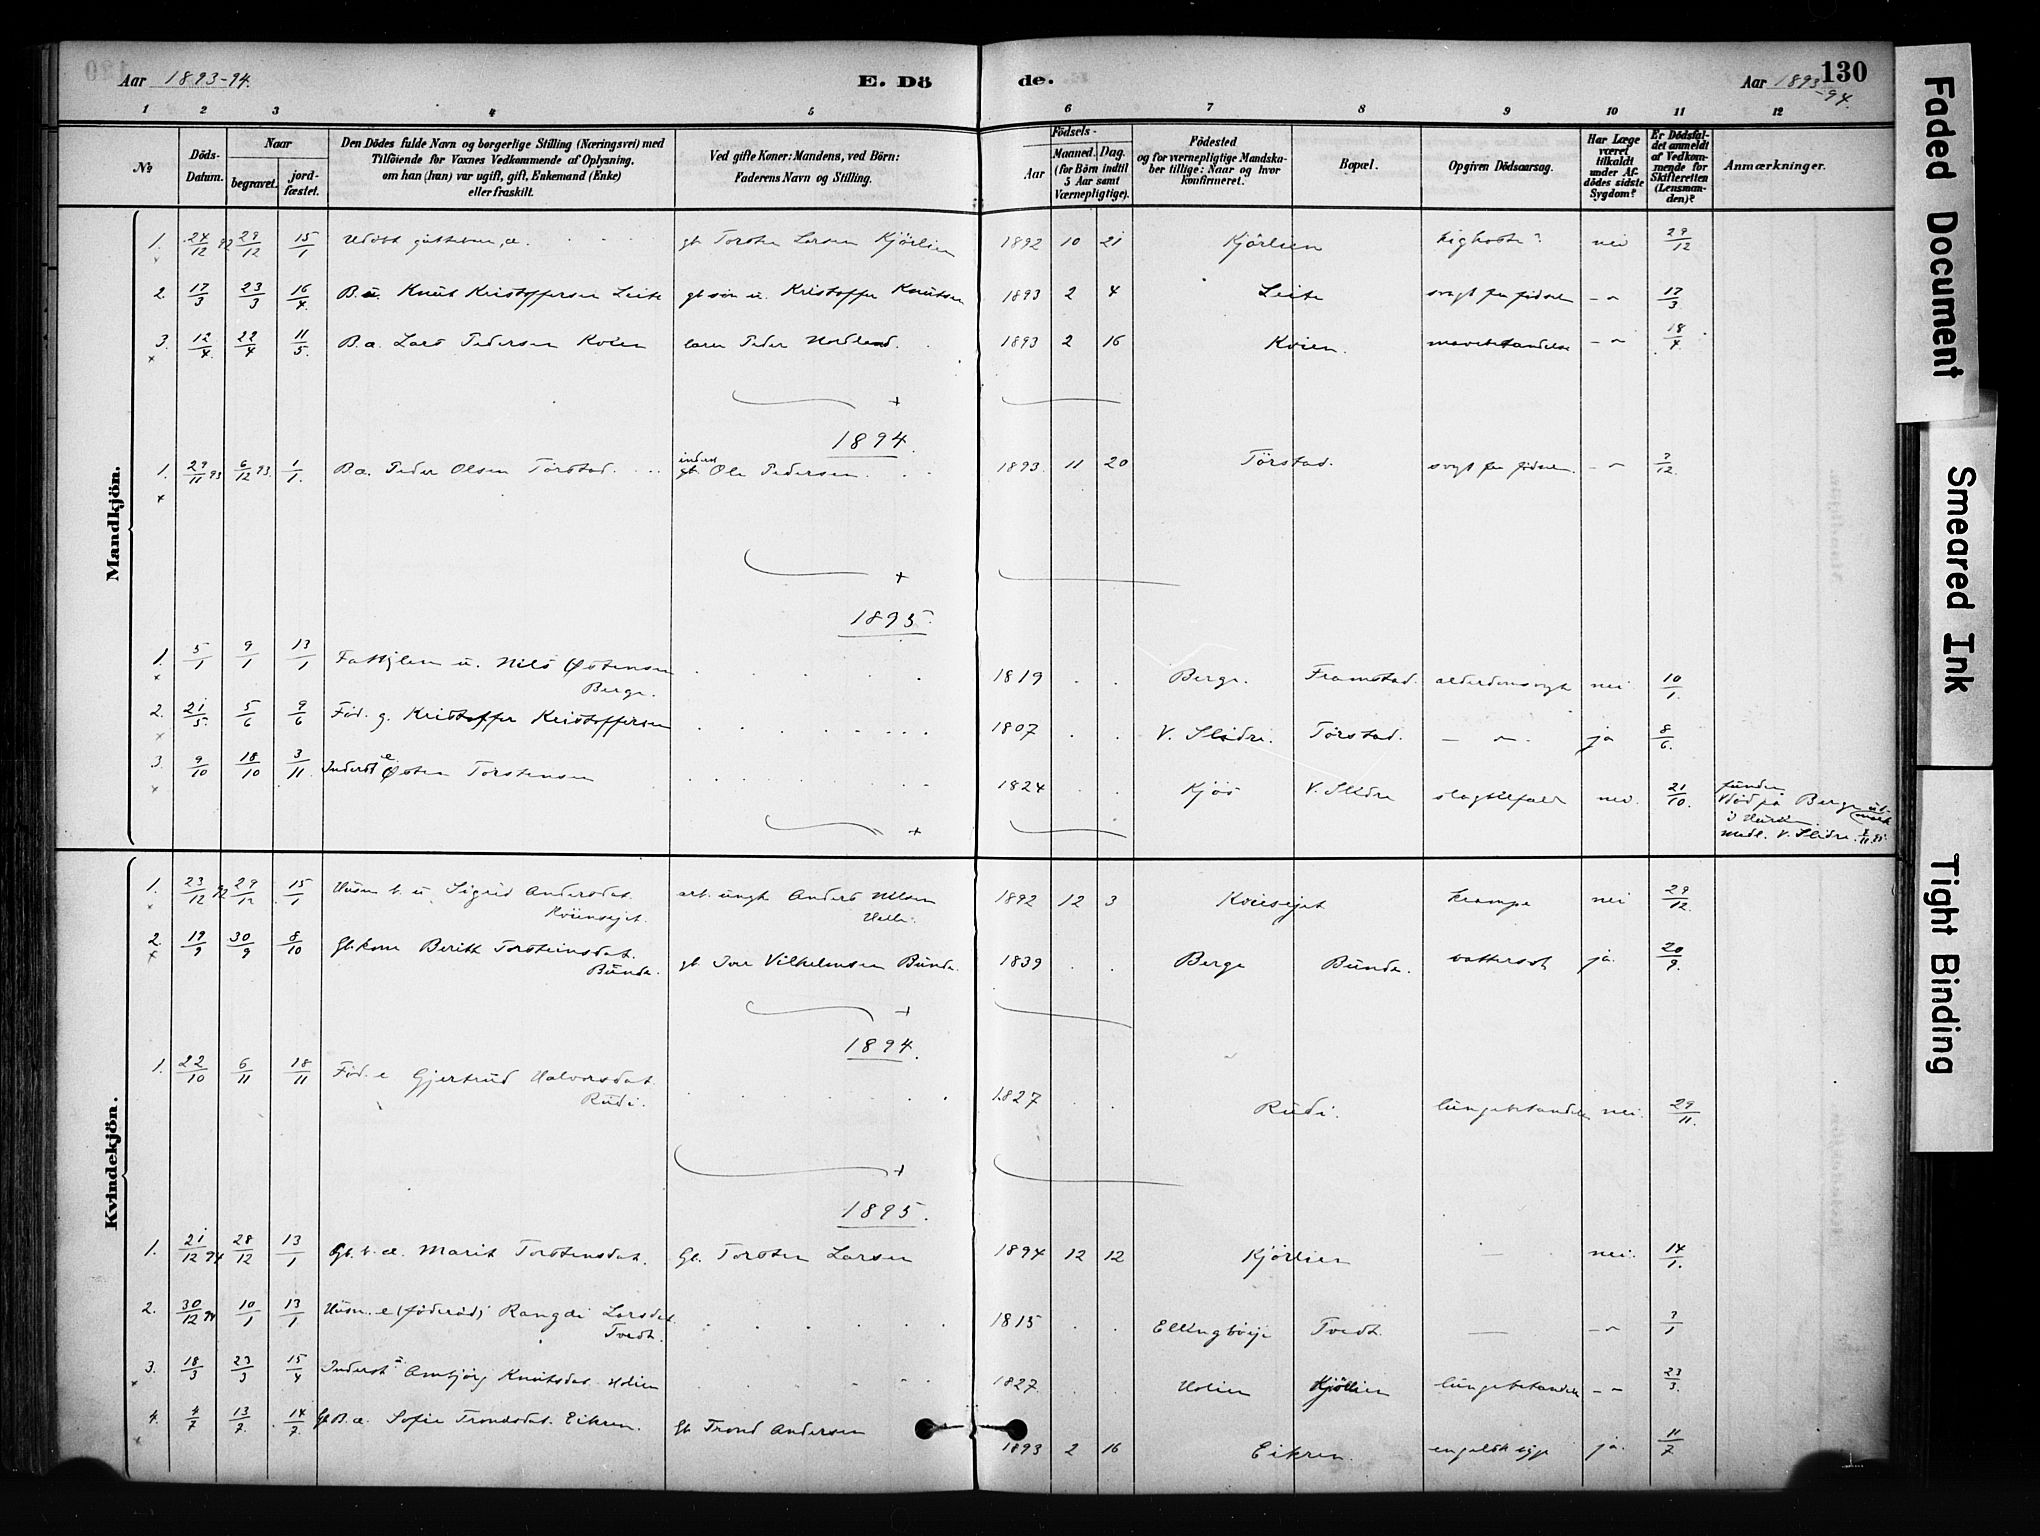 Aar 1893-94. E. Dö de. Aar 1893-94. 130
1 2 3 4 5 6 7 8 9 10 11 12
No
Döds-Datum.
Naar
begravet.
jord-fæstet.
Den Dödes fulde Navn og borgerlige Stilling (Næringsvei) med
Tilföiende for Voxnes Vedkommende af Oplysning,
om han (hun) var ugift, gift, Enkemand (Enke)
eller fraskilt.
Ved gifte Koner: Mandens, ved Börn:
Faderens Navn og Stilling.
Födsels-
Aar
Maaned. Dag.
(for Börn indtil
5 Aar samt
Værnepligtige).
Födested
og for værnepligtige Mandska-
ber tillige: Naar og hvor
konfirmeret.
Bopæl.
Opgiven Dödsaarsag.
Har Læge
været
tilkaldt
under Af-
dödes sidste
Sygdom?
Er Dödsfal-
det anmeldt
af Vedkom-
mende for
Skifteretten
(Lensman-
den)?
Anmærkninger.
Mandkjön.
1. 24/12 92 29/12 15/1 gb. Torsten Larsen Kjörlien 1892 10 21 Kjörlien kighoste? nei 29/12
2. 17/3 23/3 16/4 B.u. Knut Kristoffersen Leite gbsön u. Kristoffer Knutsen 1893 2 4 Leite svagt fra födsel - " - 17/3
3. 12/4 22/4 11/5 B.a. Lars Pedersen Kvien Peder Nordland 1893 2 16 Kvien. - " - 18/4
1894.
1. 29/11 93 6/12 93. 1/1. B.a. Peder Olsen Törstad. inderst Ole Pedersen. 1893. 11 20 Törstad. svagt fra födsel. - " - 7/12.
1895.
1. 5/1 9/1 13/1 u. Nils Østensen Berge. 1819 Berge. Framstad. alderdomssvagh. nei. 10/1.
2. 21/5. 5/6 9/6 Föd. g. Kristoffer Kristoffersen 1807 V. Slidre. Törstad. — " — ja 8/6.
3. 9/10 18/10 3/11. Inderst e Østen Torstensen 1824 Kjös V. Slidre slagtilfælde nei. 21/10. funden
död på Berge
V. Slidre.
Kvindekjön.
1. 23/12 92 29/12 15/1 Husm. b. u. Sigrid Andersdat. Kviensejet. arb. ungk. Anders Nilsen 1892 12 3 Kviensejet krampe nei 29/12.
2. 19/9 30/9 8/10 Gb.kone Beritt Torsteinsdat. Bunde. gb. Iver Vilhelmsen Bunde. 1839 Berge Bunde. vattersot ja. 20/9.
1894.
1. 22/10 6/11 18/11 Föd. e Gjertrud Halvorsdat. Rudi. 1827 Rudi. lungebetændelse nei. 29/11.
1895.
1. 21/12 94 28/12 13/1 Gb. b. æ. Marit Torstensdat. Gb. Torsten Larsen 1894 12 12 Kjörlien — nei. 14/1.
2. 30/12 94 10/1 13/1 Husm. e (föderåd) Rangdi Larsdat. Tvedt. 1815 Ellingböje Tvedt. — - " 7/1
3. 18/3 23/3 15/4 Inderst Ambjörg Knutsdat. Holien 1827. Holien Kjöllien lungebetændelse - " - 23/3.
4. 4/7 13/7. 14/7. Gb. B. æ. Sofie Trondsdat. Eikren. Gb. Trond Andersen 1893 2 16 Eikren. engelsk syge ja. 11/7
Faded Document
Smeared Ink
Tight Binding